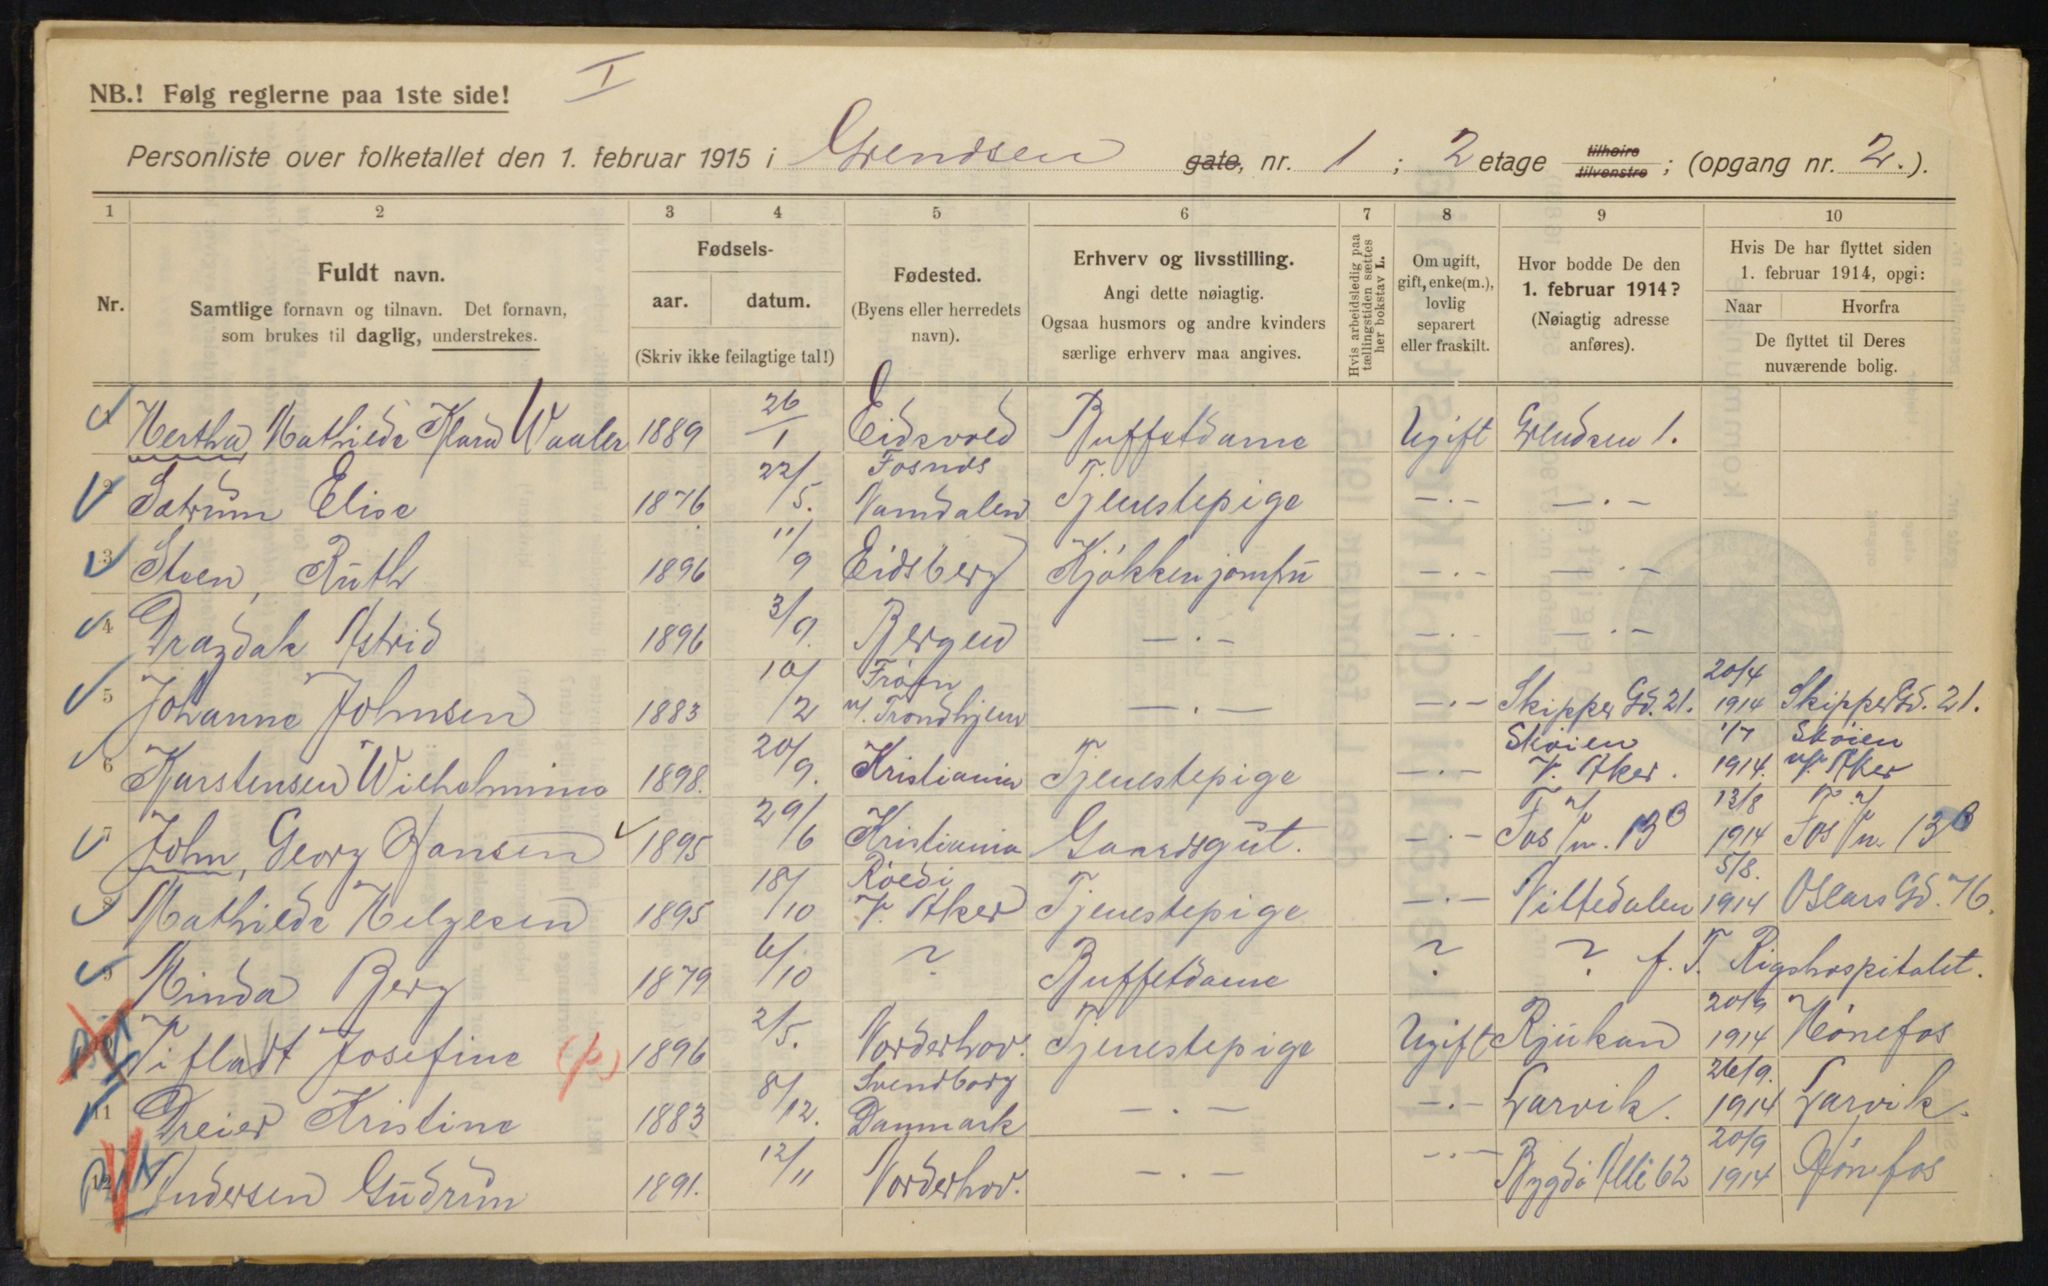 I
NB.! Følg reglerne paa 1ste side!
Personliste over folketallet den 1. februar 1915 i Grendsen gate, nr. 1 ; 2 etage tilhøire tilvenstre ; (opgang nr. 2.).
1 2 3 4 5 6 7 8 9 10
Nr.
Fuldt navn.
Samtlige fornavn og tilnavn. Det fornavn,
som brukes til daglig, understrekes.
Fødsels-
aar. datum.
(Skriv ikke feilagtige tal!)
Fødested.
(Byens eller herredets
navn).
Erhverv og livsstilling.
Angi dette nøiagtig.
Ogsaa husmors og andre kvinders
særlige erhverv maa angives.
Hvis arbeidsledig paa
tællingstiden sættes
her bokstav L.
Om ugift,
gift, enke(m.),
lovlig
separert
eller fraskilt.
Hvor bodde De den
1. februar 1914?
(Nøiagtig adresse
anføres).
Hvis De har flyttet siden
1. februar 1914, opgi:
Naar Hvorfra
De flyttet til Deres
nuværende bolig.
1 Hertha Mathilde Klara Waaler 1889 26/1 Eidsvold Buffetdame Ugift Grendsen 1.
2 Sætrum Elise 1876 22/5. Fosnæs Namdalen Tjenestepige —·— —·—
3 Steen, Ruth 1896 11/9 Eidsberg Kjøkkenjomfru —·— —·—
4 Dragdak Astrid 1896 3/9. Bergen —·— —·— —·—
5 Johanne Johnsen 1883 10/2 Frøen v/. Trondhjem —·— —·— Skipper Gd. 21. 20/4 1914 Skipper Gd. 21.
6 Karstensen Wilhelmine 1898. 20/9. Kristiania Tjenestepige —·— Skøien V. Aker. 1/7 1914. Skøien V. Aker
7 John, Georg Hansen 1895 29/6 Kristiania Gaardsgut. —·— Fos v/n. 13B 13/8 1914 Fos v/n. 13B
8 Mathilde Helgesen 1895 18/10 V. Aker Tjenestepige —·— 5/8. 1914 Oscars Gd. 76.
9 Minda Berg 1879 6/10 ? Buffetdame ? ? f. T. Rigshospitalet.
10 Josefine (p.) 1896 2/5. Norderhov. Tjenestepige Ugift Rjukan 20/9 1914 Hønefos
11 Dreier Kristine 1883 8/12. Svendborg Danmark —·— —·— Larvik. 26/9. 1914 Larvik.
12 Andersen Gudrun 1891. 12/11 Norderhov. —·— —·— Bygdø Alle 62 20/9 1914 Hønefos